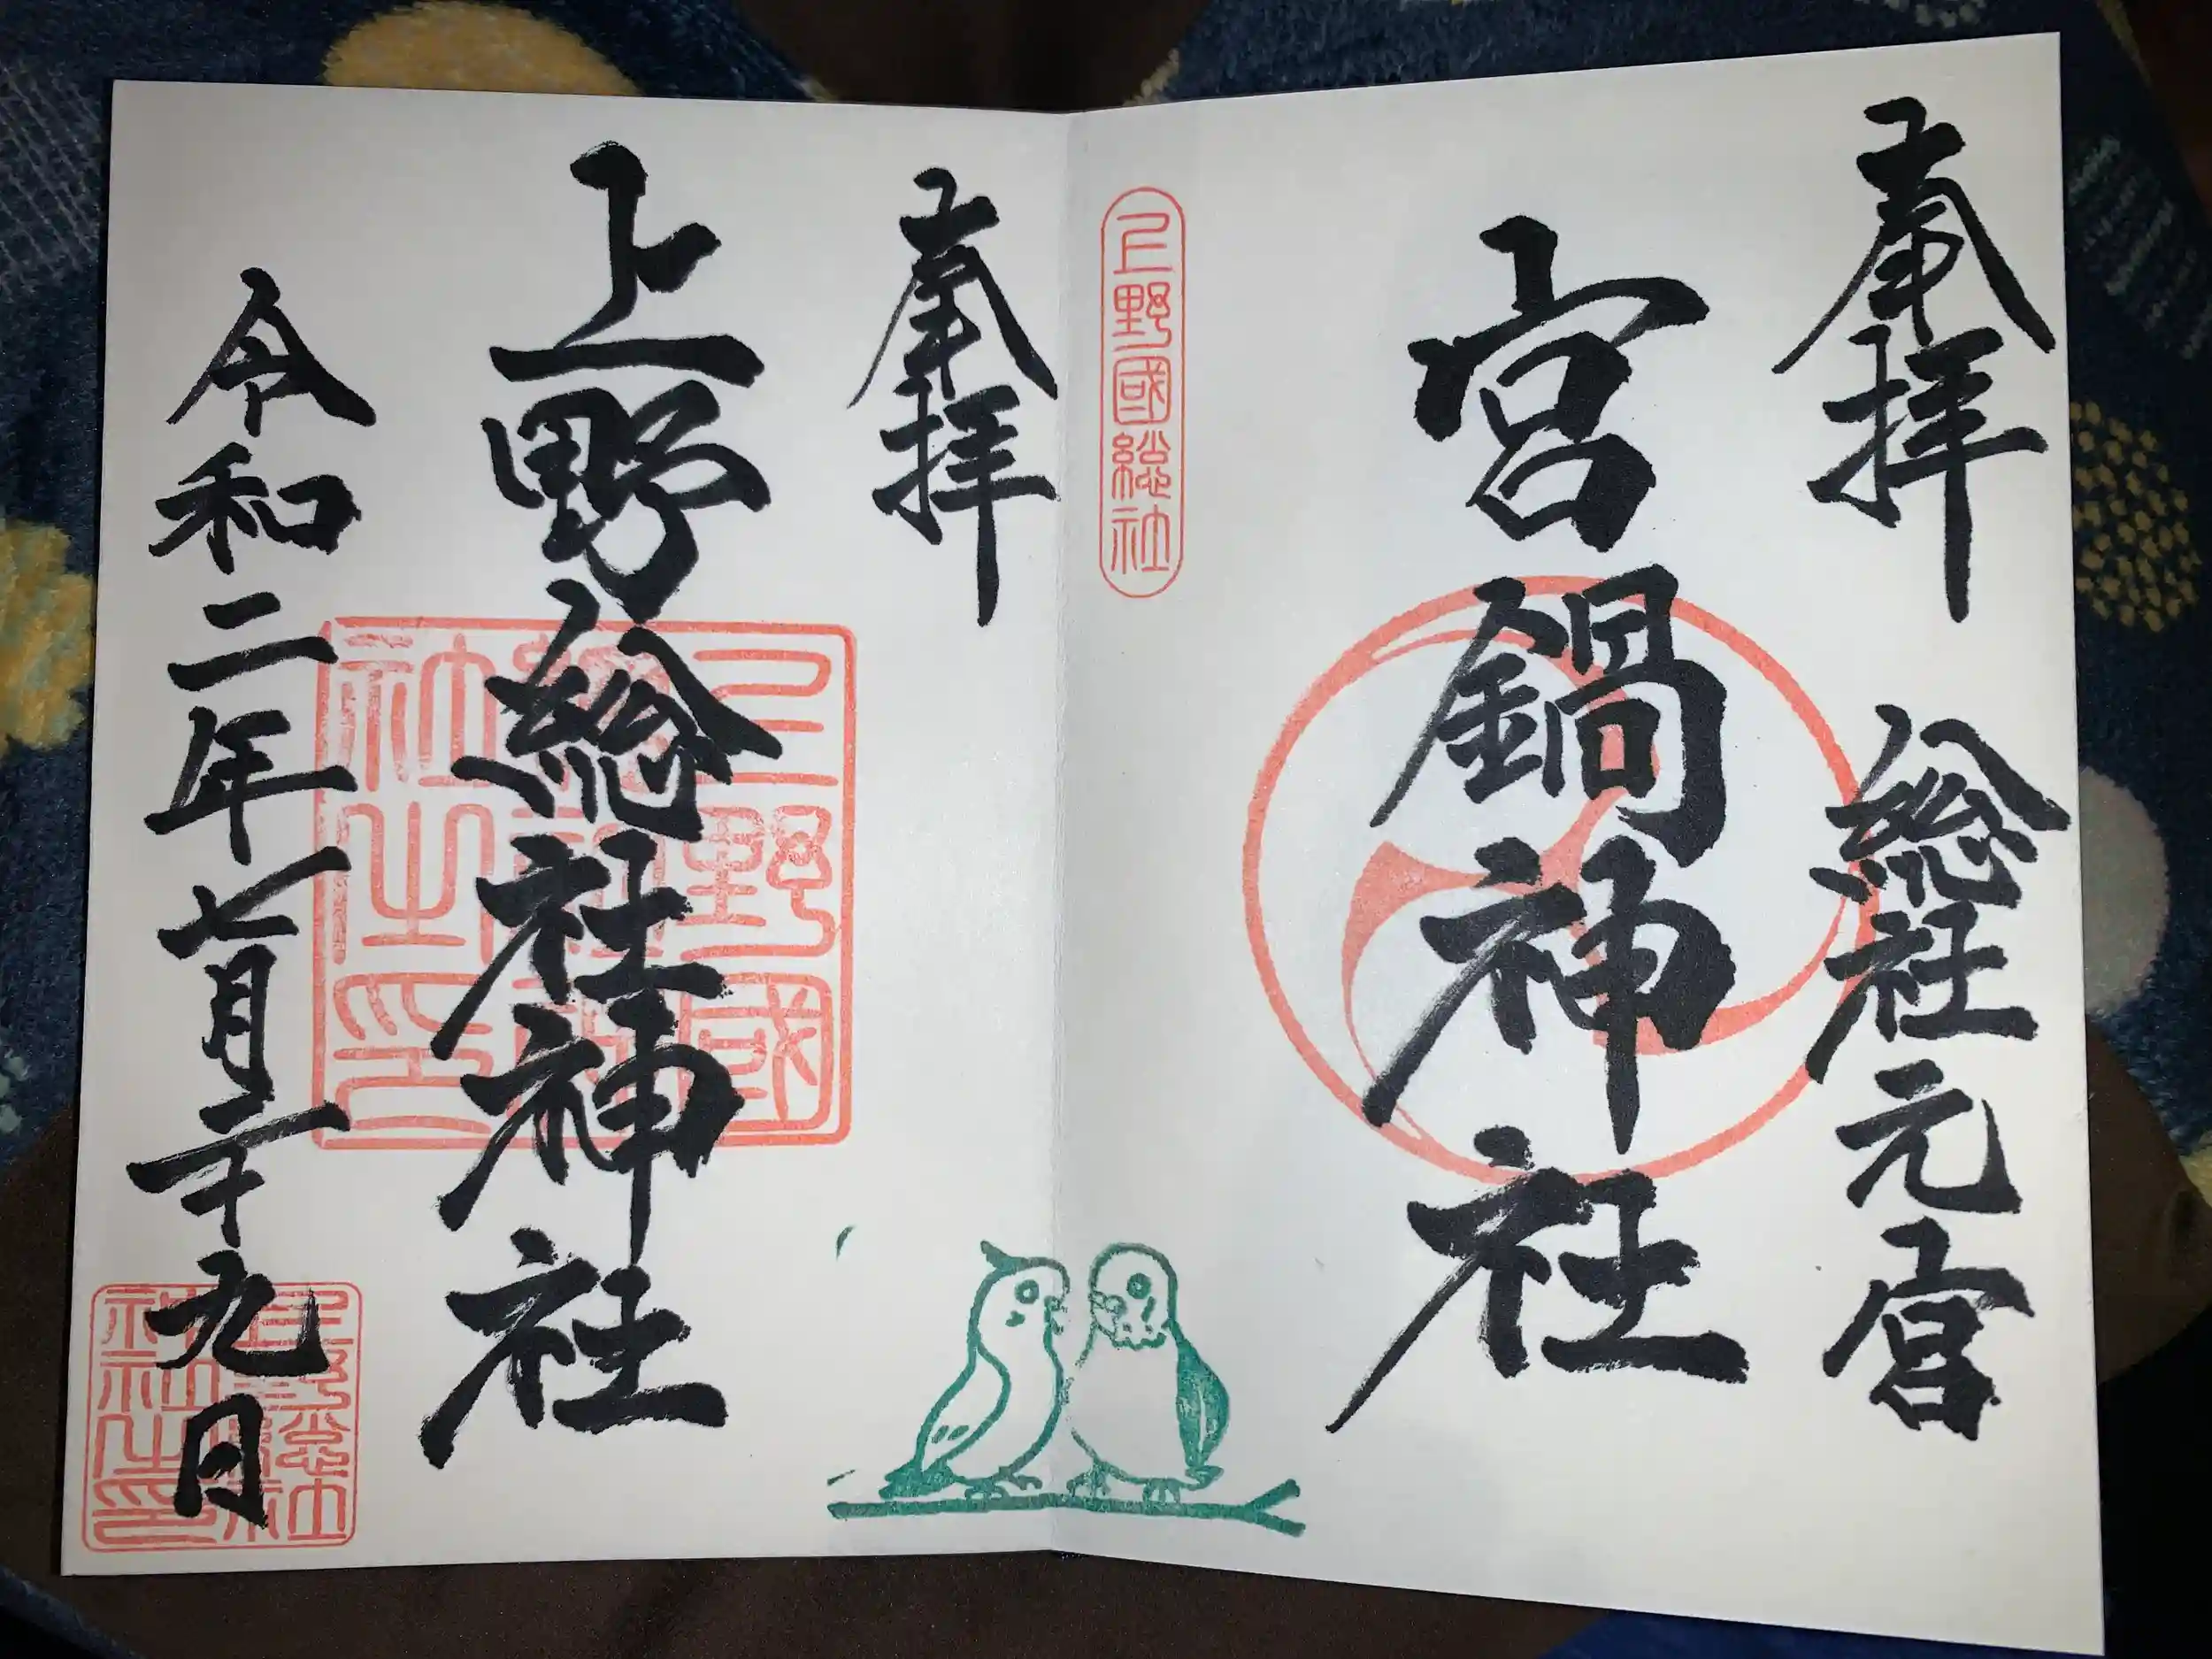 奉拝
総社元宮
宮鍋神社
上野國総社
奉拝
上野総社神社
上野國総社神社之印
令和二年七月二十九日
上野総社神社之印